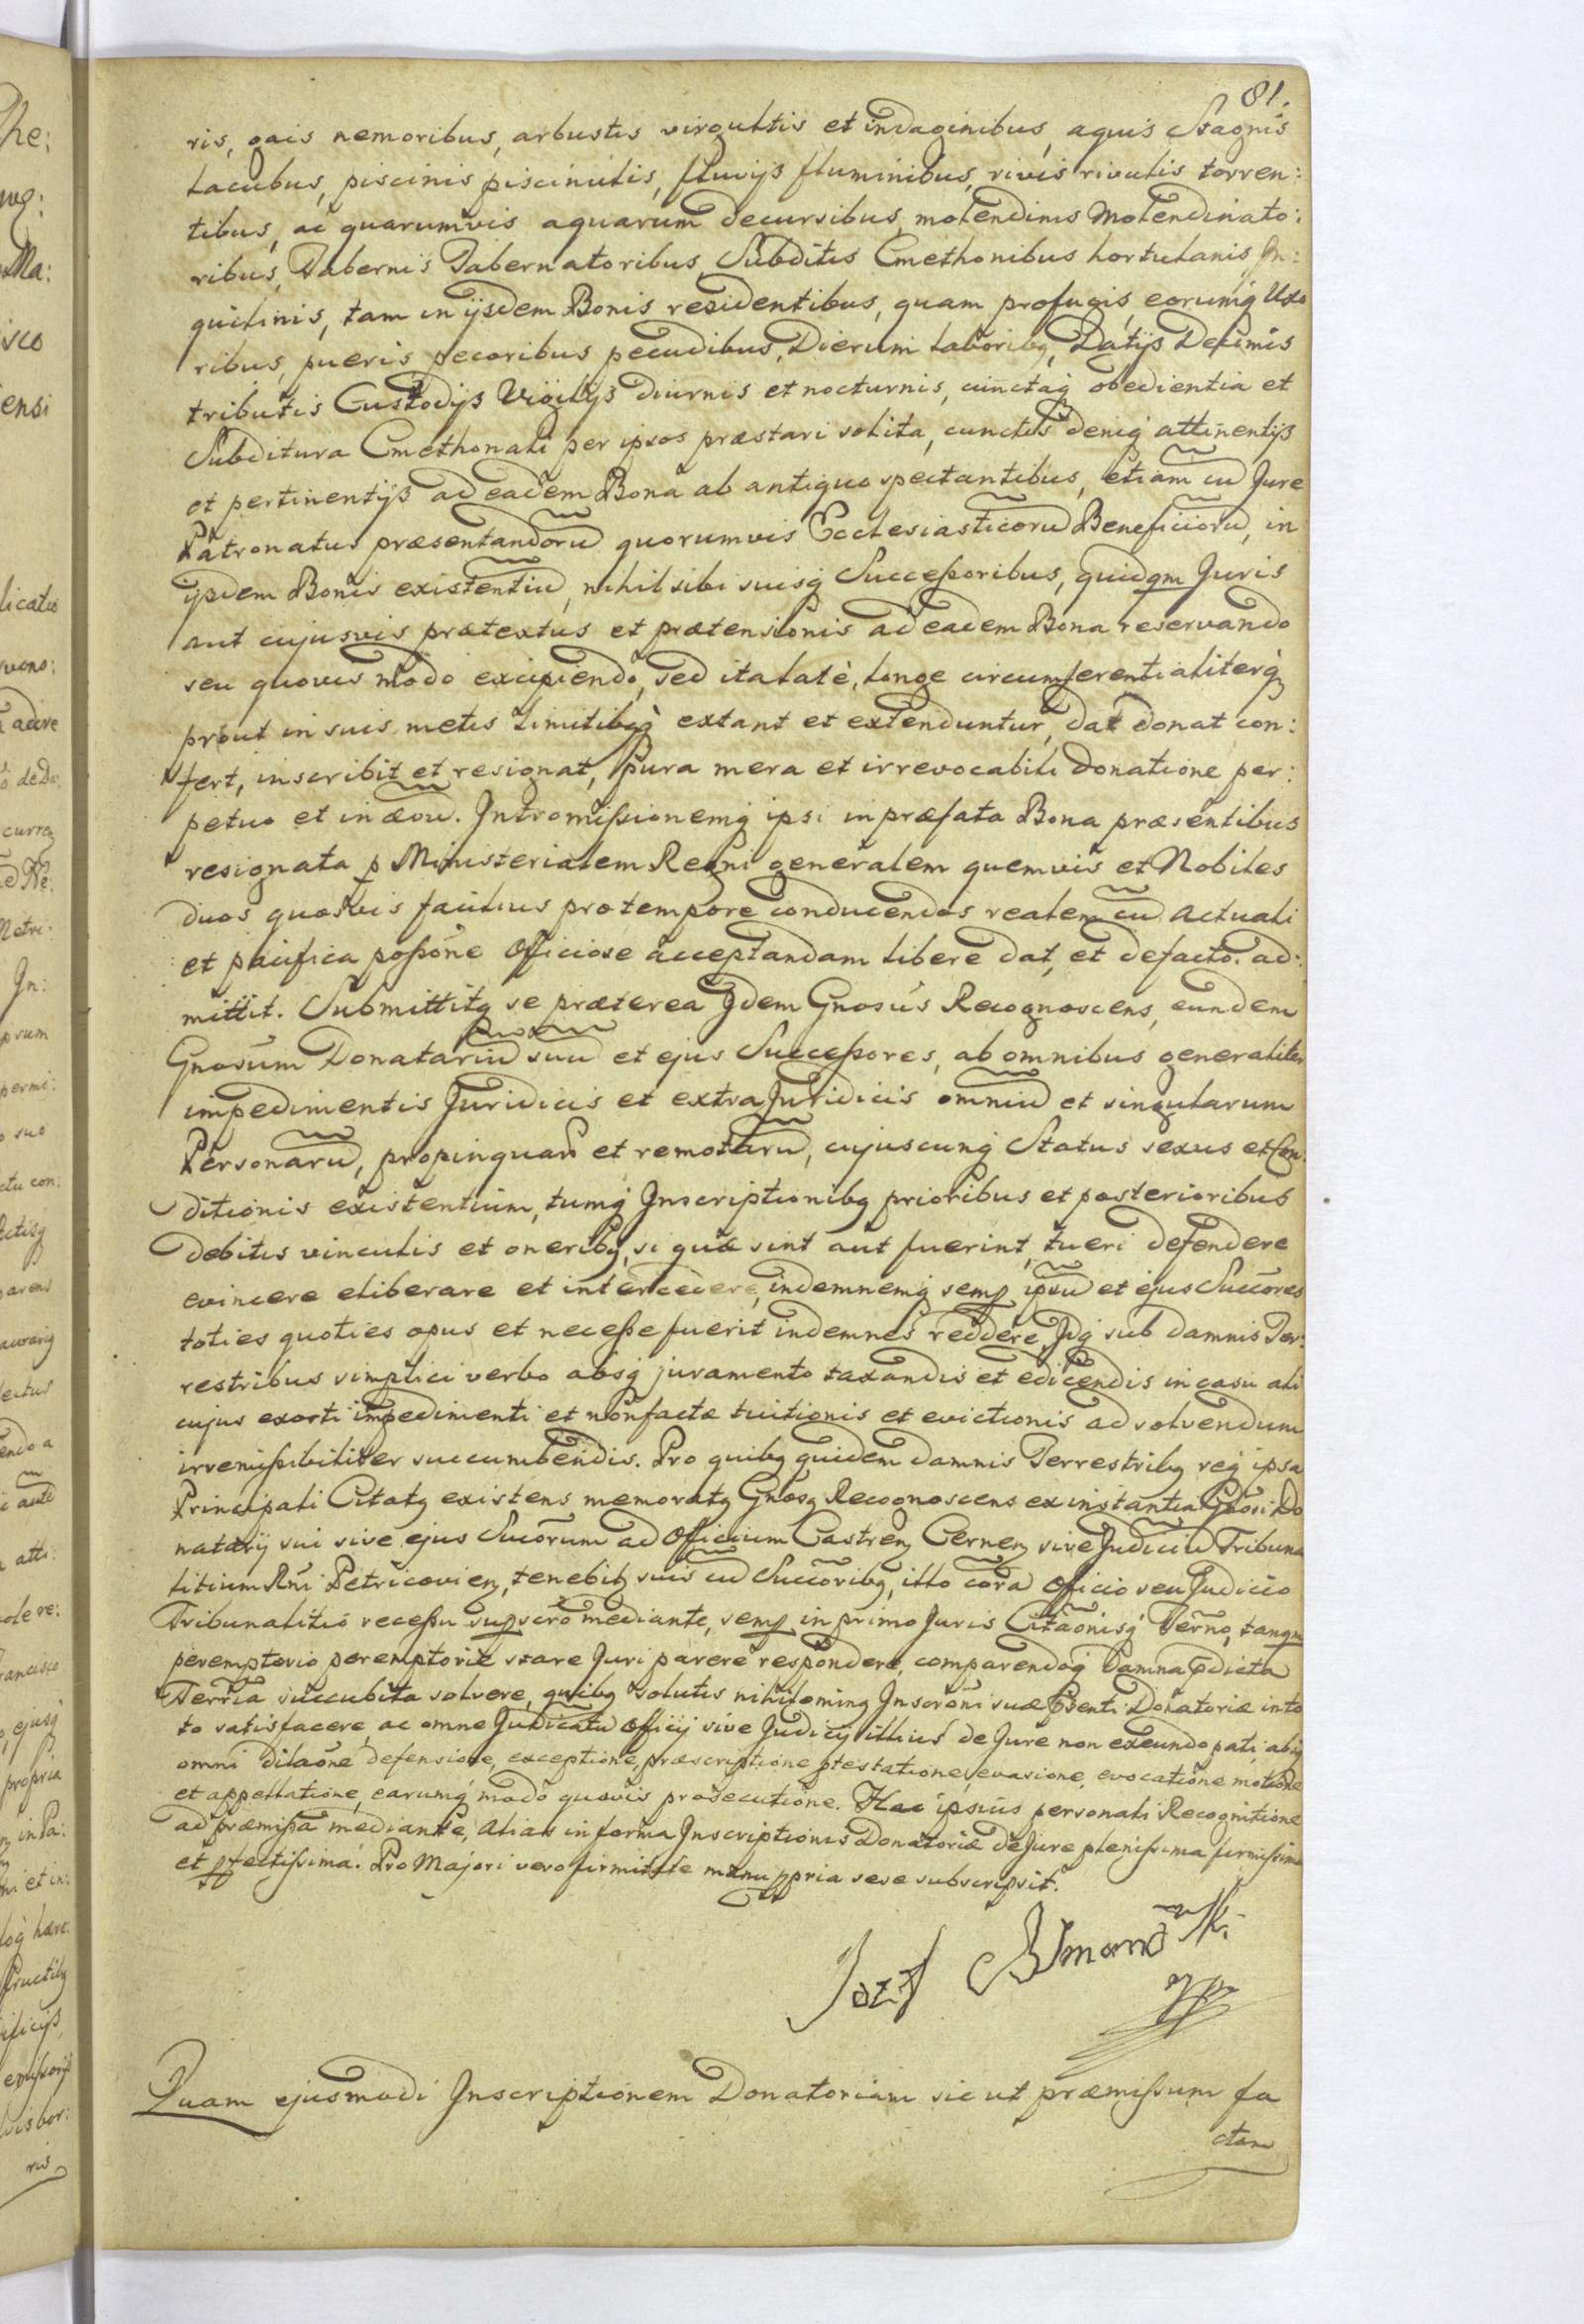 81.
ris, gais nemoribus, arbustis virgultis et indaginibus, aquis Stagnis
Lacubus, piscinis piscinulis, fluvijs fluminibus, rivis rivulis torren:
tibus, ac quarumvis aquarum decursibus, molendinis Molendinato:
ribus, Tabernis Tabernatoribus, Subditis Cmethonibus hortulanis In:
quilinis, tam in ijsdem Bonis residentibus, quam profugis, eorumq Uxo
ribus, pueris pecoribus pecudibus, Dierum laboribq, Datijs Decimis
tributis Custodijs Vigilijs diurnis et nocturnis, cunctaq obedientia et
Subditura Cmethonali per ipsos præstari solita, cunctis deniq attinentijs
et pertinentijs ad eadem Bona ab antiquo spectantibus, etiam cu Jure
Patronatus præsentandoru quorumvis Ecclesiasticoru Beneficioru, in
ijsdem Bonis existentiu, nihil sibi suisq Successoribus, quidqm Juris
aut cujusvis prætextus et prætensionis ad eadem Bona reservando
seu quovis modo excipiendo, sed ita latè, longe circumferentialiterq
prout in suis metis limitibq extant et extenduntur, dat donat con:
fert, inscribit et resignat, pura mera et irrevocabili donatione per:
petuo et in ævu. Intromissionemq ipsi in præfata Bona præsentibus
resignata p Ministerialem Regni generalem quemvis et Nobiles
duos quosvis facilius pro tempore conducendos realem cu actuali
et pacifica possone Officiose acceptandam libere dat, et de facto ad:
mittit. Submittitq se præterea Idem Gnosus Recognoscens, eundem
Gnosum Donatariu suu et ejus Successores, ab omnibus generaliter
impedimentis Juridicis et extra Juridicis omniu et singularum
Personaru, propinquaru et remotaru, cujuscunq Status sexus et Con
ditionis existentium, tumq Inscriptionibq prioribus et posterioribus
Debitis vinculis et oneribq, si quæ sint aut fuerint, tueri defendere
evincere eliberare et intercedere, indemnemq semp ipsu et ejus Succores
toties quoties opus et necesse fuerit indemnes reddere, Idq sub damnis Ter:
restribus simplici verbo absq juramento taxandis et edicendis in casu ali
cujus exorti impedimenti et non factæ tuitionis et evictionis ad solvendum
irremissibiliter succumbendis. Pro quibq quidem damnis Terrestribq req ipsa
Principali Citatq existens memoratq Gnosq Recognoscens ex instantia Gnosi Do
natarij sui sive ejus Succorum ad Officium Castren Cernen sive Judiciu Tribuna
litium Rni Petricovien, tenebitq suis cu Succoribq, illo cora Officio seu Judicio
Tribunalitio recessu supscro mediante, semp in primo Juris Citaonisq Verno, tanqm
peremptorio peremptorie stare Juri parere respondere, comparendoq Damna pdicta
Terria succubita solvere, quibq solutis nihilominq Inscroni suæ psenti Donatoriæ in to
to satisfacere, ac omne Judicatu Officij sive Judicij illius de Jure non exeundo pati, absq
omni dilaone defensione, exceptione, præscriptione ptestatione, evasione, evocatione motione
et appellatione, earumq modo quovis prosecutione. Hac ipsius personali Recognitione
ad præmissa mediante, alias in forma Inscriptionis Donatoriæ de Jure plenissima firmissima
et pfectissima. Pro Majori vero firmitate manu ppria sese subscripsit.
Quam ejusmodi Inscriptionem Donatoriam sicut præmissum fa
ctam